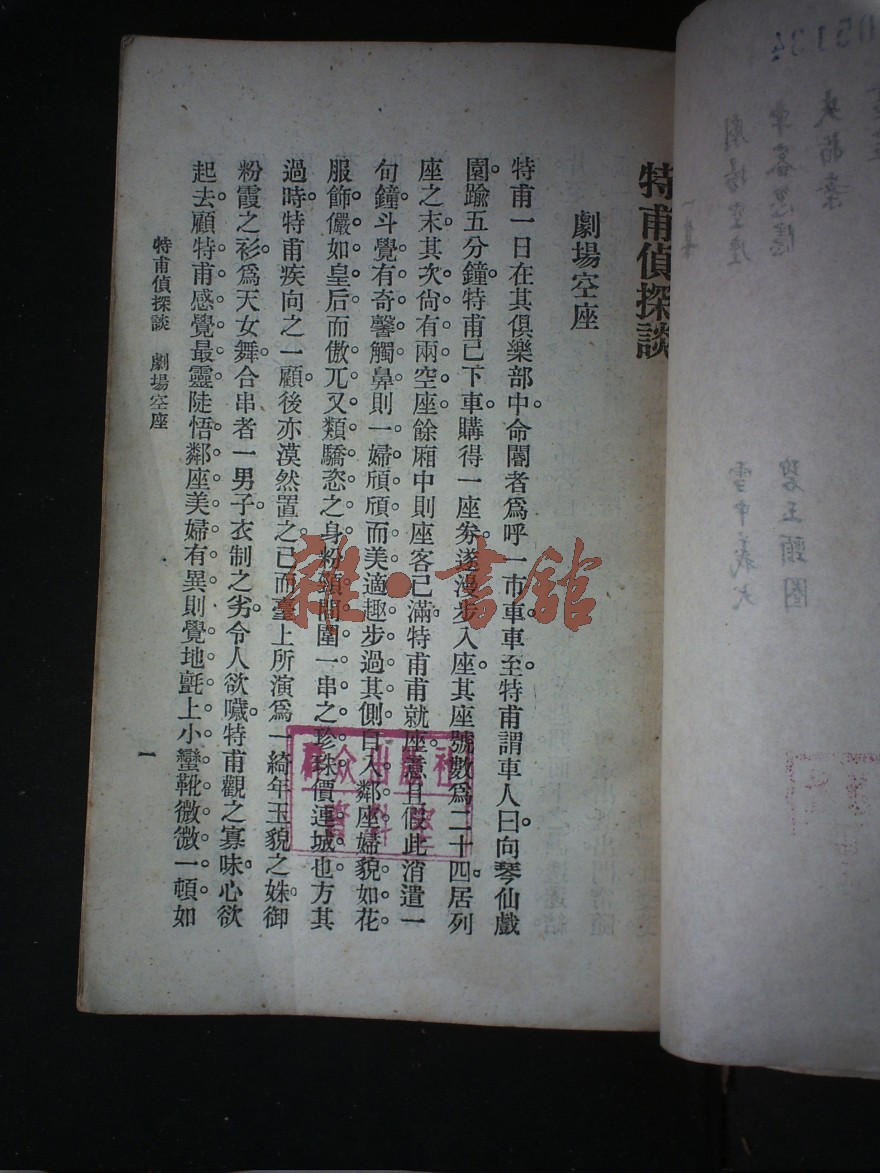 特甫偵探談
劇場空座
特甫一日在其俱樂部中。命閽者爲呼一市車。車至。特甫謂車人曰。向琴仙戲
園。踰五分鐘。特甫已下車。購得一座券。遂漫步入座。其座號數爲二十四。居列
座之末。其次尙有兩空座。餘廂中則座客已滿。特甫甫就座。意且假此消遣一
句鐘。斗覺有奇馨觸鼻。則一婦頎頎而美。適趣步過其側。自入鄰座。婦貌如花。
服飾儼如皇后。而傲兀又類驕恣之身。粉頸間圍一串之珍珠。價連城也。方其
過時。特甫疾向之一顧。後亦漠然置之。已而臺上所演。爲一綺年玉貌之姝。御
粉霞之衫。爲天女舞。合串者一男子。衣制之劣。令人欲噦。特甫觀之寡味。心欲
起去。顧特甫感覺最靈。陡悟鄰座美婦有異。則覺地氈上小蠻靴微微一頓。如
特甫偵探談　劇場空座
一
雜·書館
群众出版社
資料室
05134
車客忽隱
劇場空座
碧玉頭圈
雪中義犬